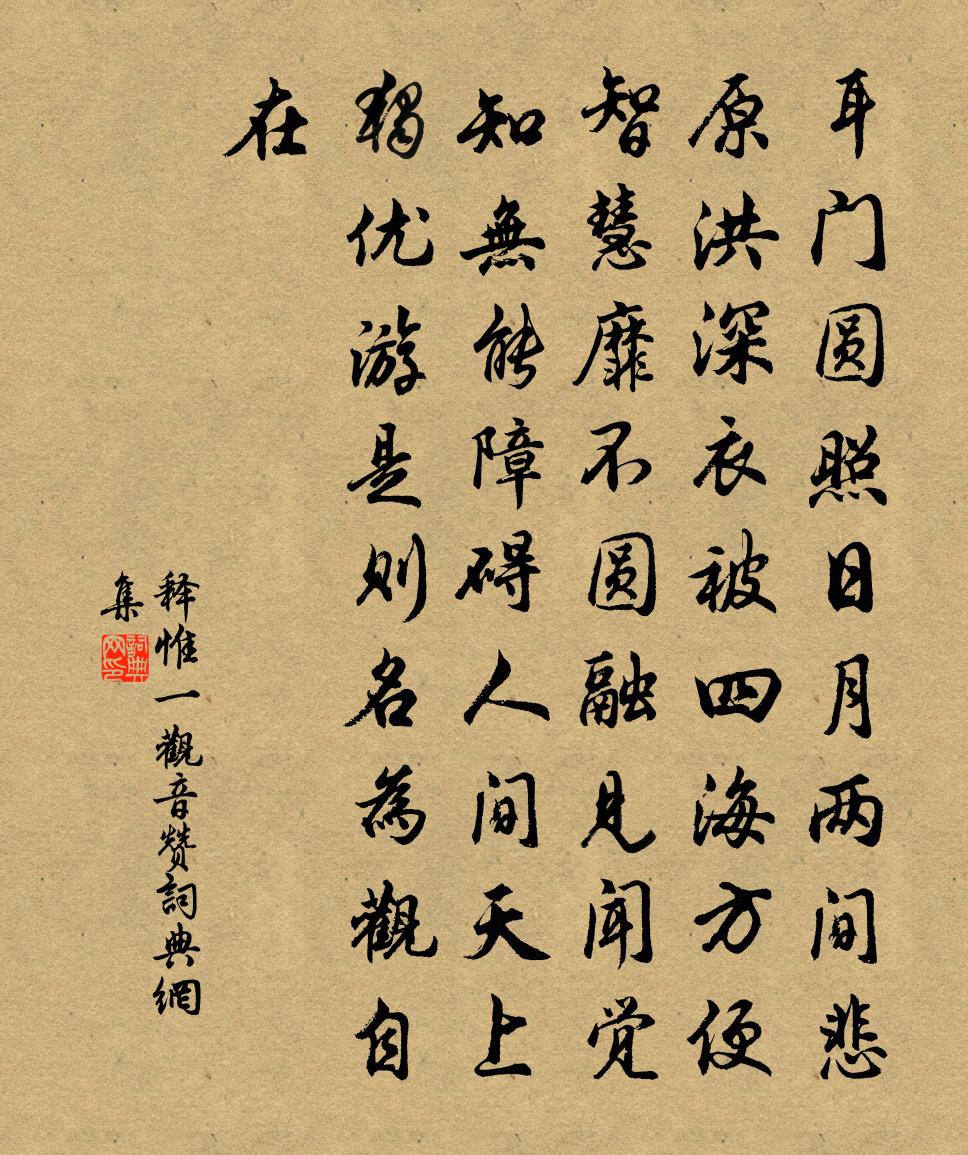 耳门圆照日月两间悲
原洪深衣被四海方便
智慧靡不圆融见闻觉
知無能障碍人间天上
独优游是则名為觀自
在
释惟一觀音赞詞典網
集
詞典
网印